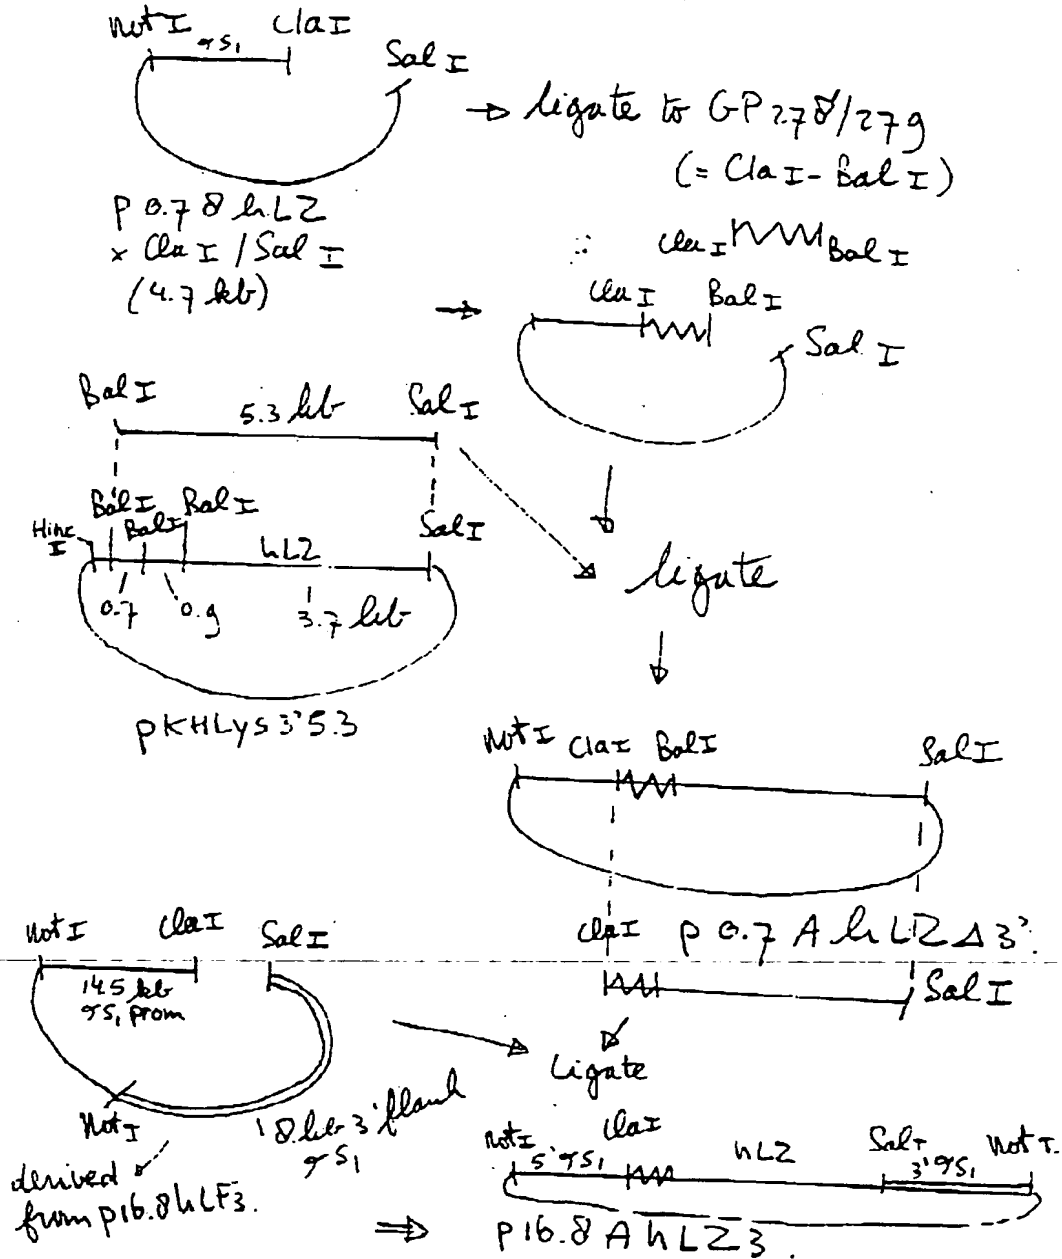 Not I ClaI
αS1
Sal I
→ ligate to GP278/279
(= Cla I - Bal I)
p 0.7 8 hLZ
x Cla I / Sal I
(4.7 kb)
Cla I Bal I
Cla I Bal I
Sal I
Bal I 5.3 kb Sal I
Hinc I Bal I Bal I Bal I hLZ Sal I
0.7 0.9 3.7 kb
pKHLys 3'5.3
ligate
Not I Cla I Bal I Sal I
p 0.7 A hLZ Δ 3'.
Cla I Sal I
Not I Cla I Sal I
14.5 kb
αS1 prom
Not I
8 kb 3' flank
αS1
derived
from p16.8hLF3.
Ligate
Not I Cla I Sal I Not I
5' αS1 hLZ 3' αS1
⇒ p16.8 A hLZ3.